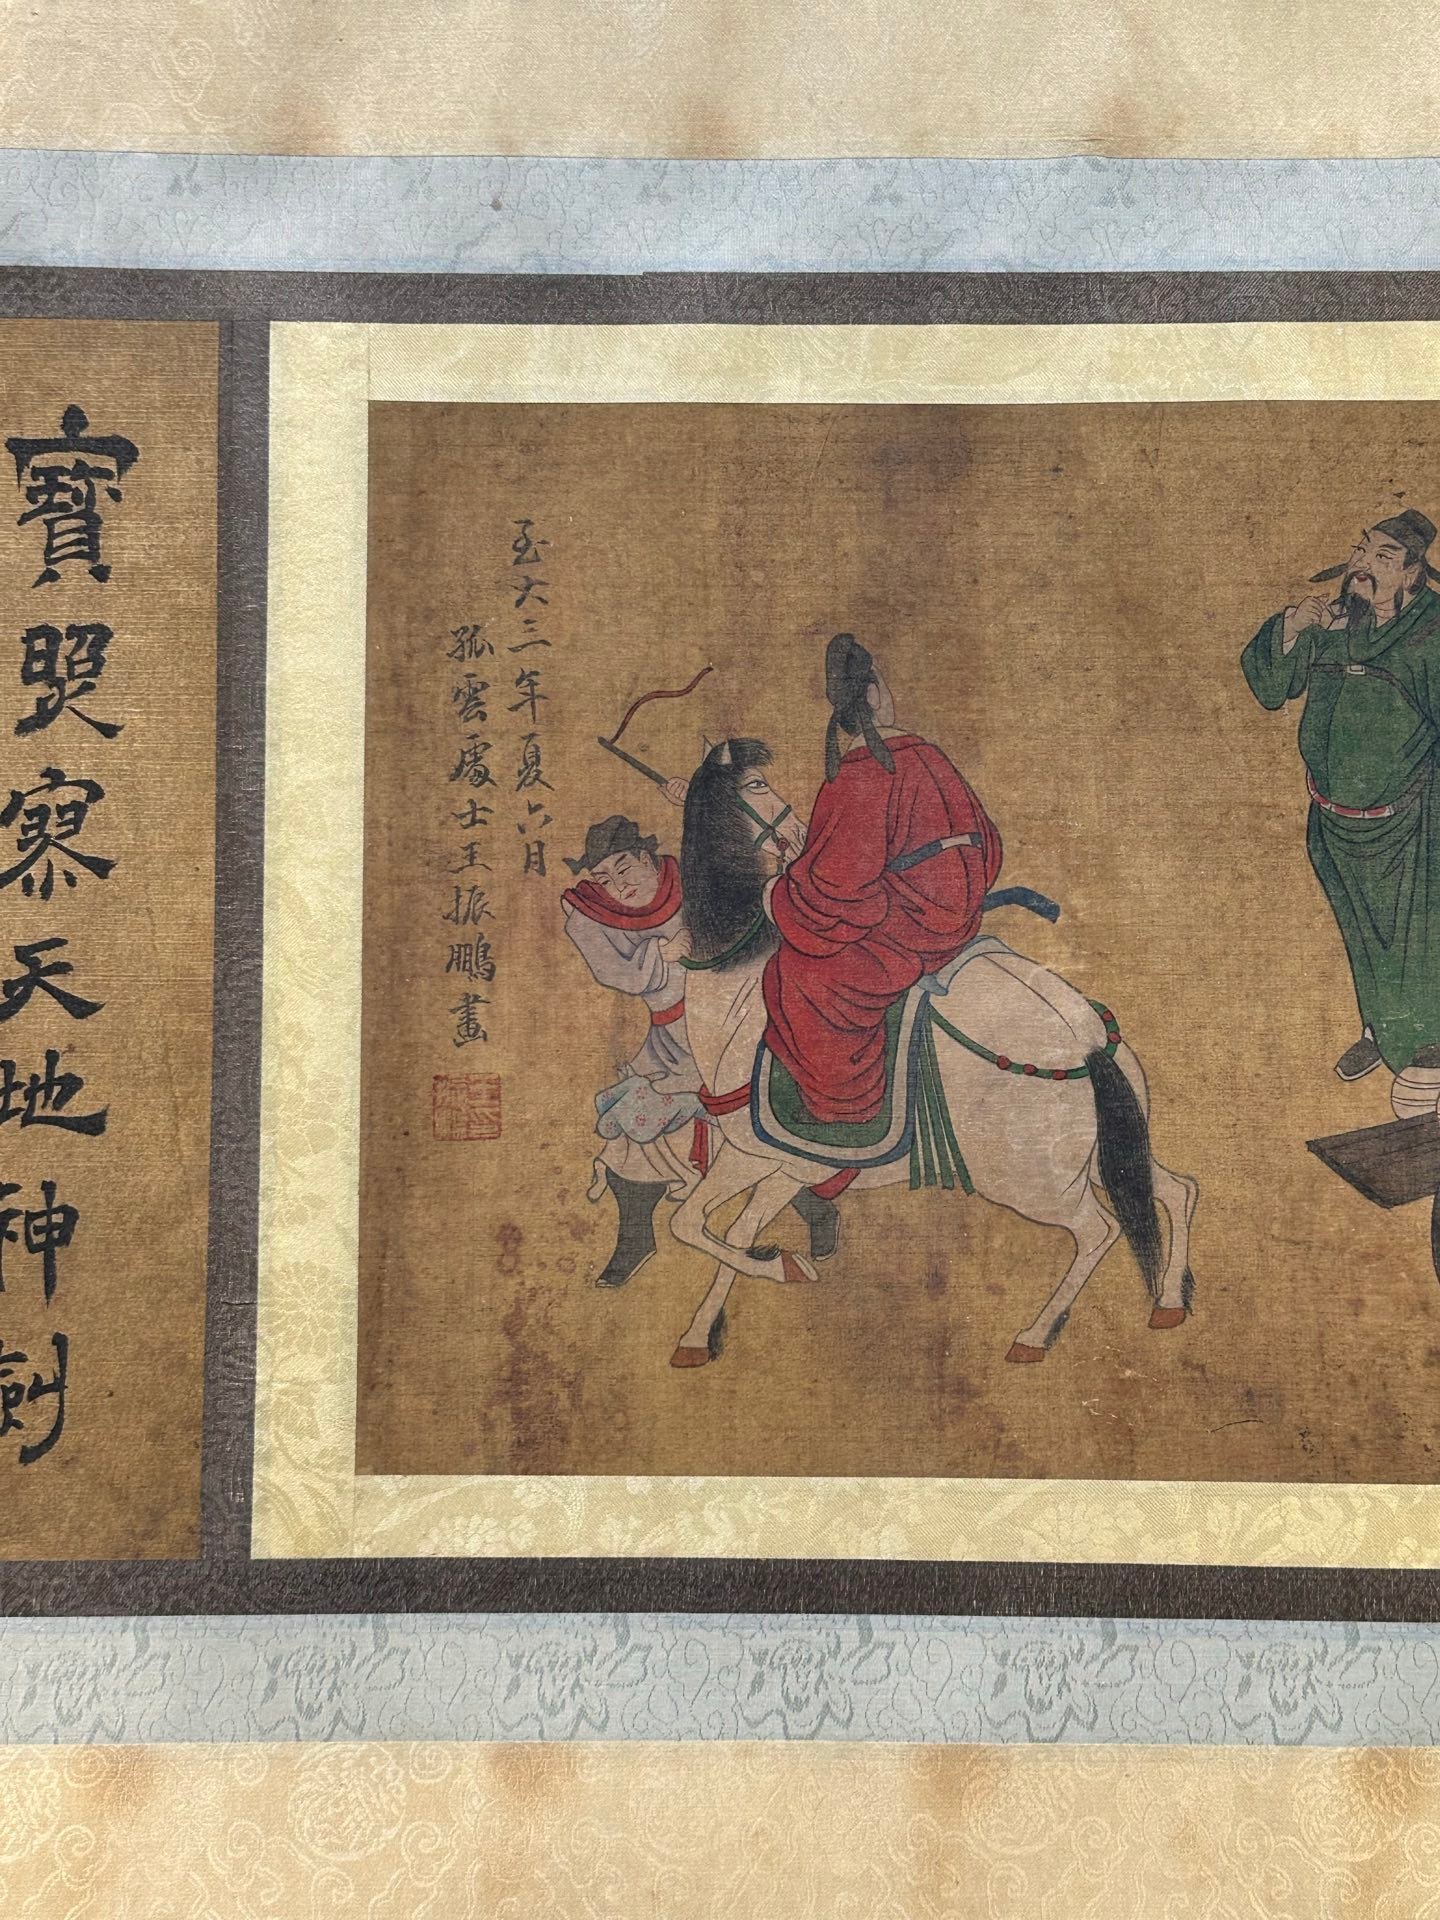 至大三年夏六月
孤雲處士王振鵬畫
寶照察天地神劍